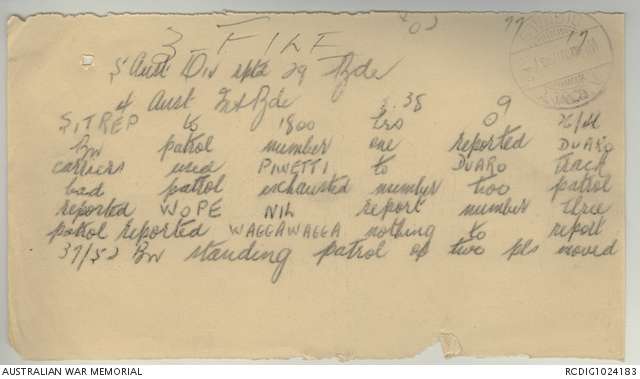 3 FILE
5 Aust Div rptd 29 Bde
4 Aust Inf Bde
SITREP to 1800 hrs
Bn patrol number one reported DUARO
carriers used PINETTI to DUARO track
bad patrol exhausted number two patrol
reported WOPE NIL report number three
patrol reported WAGGAWAGGA nothing to report
37/52 Bn standing patrol of two pls moved
AUSTRALIAN WAR MEMORIAL
RCDIG1024183